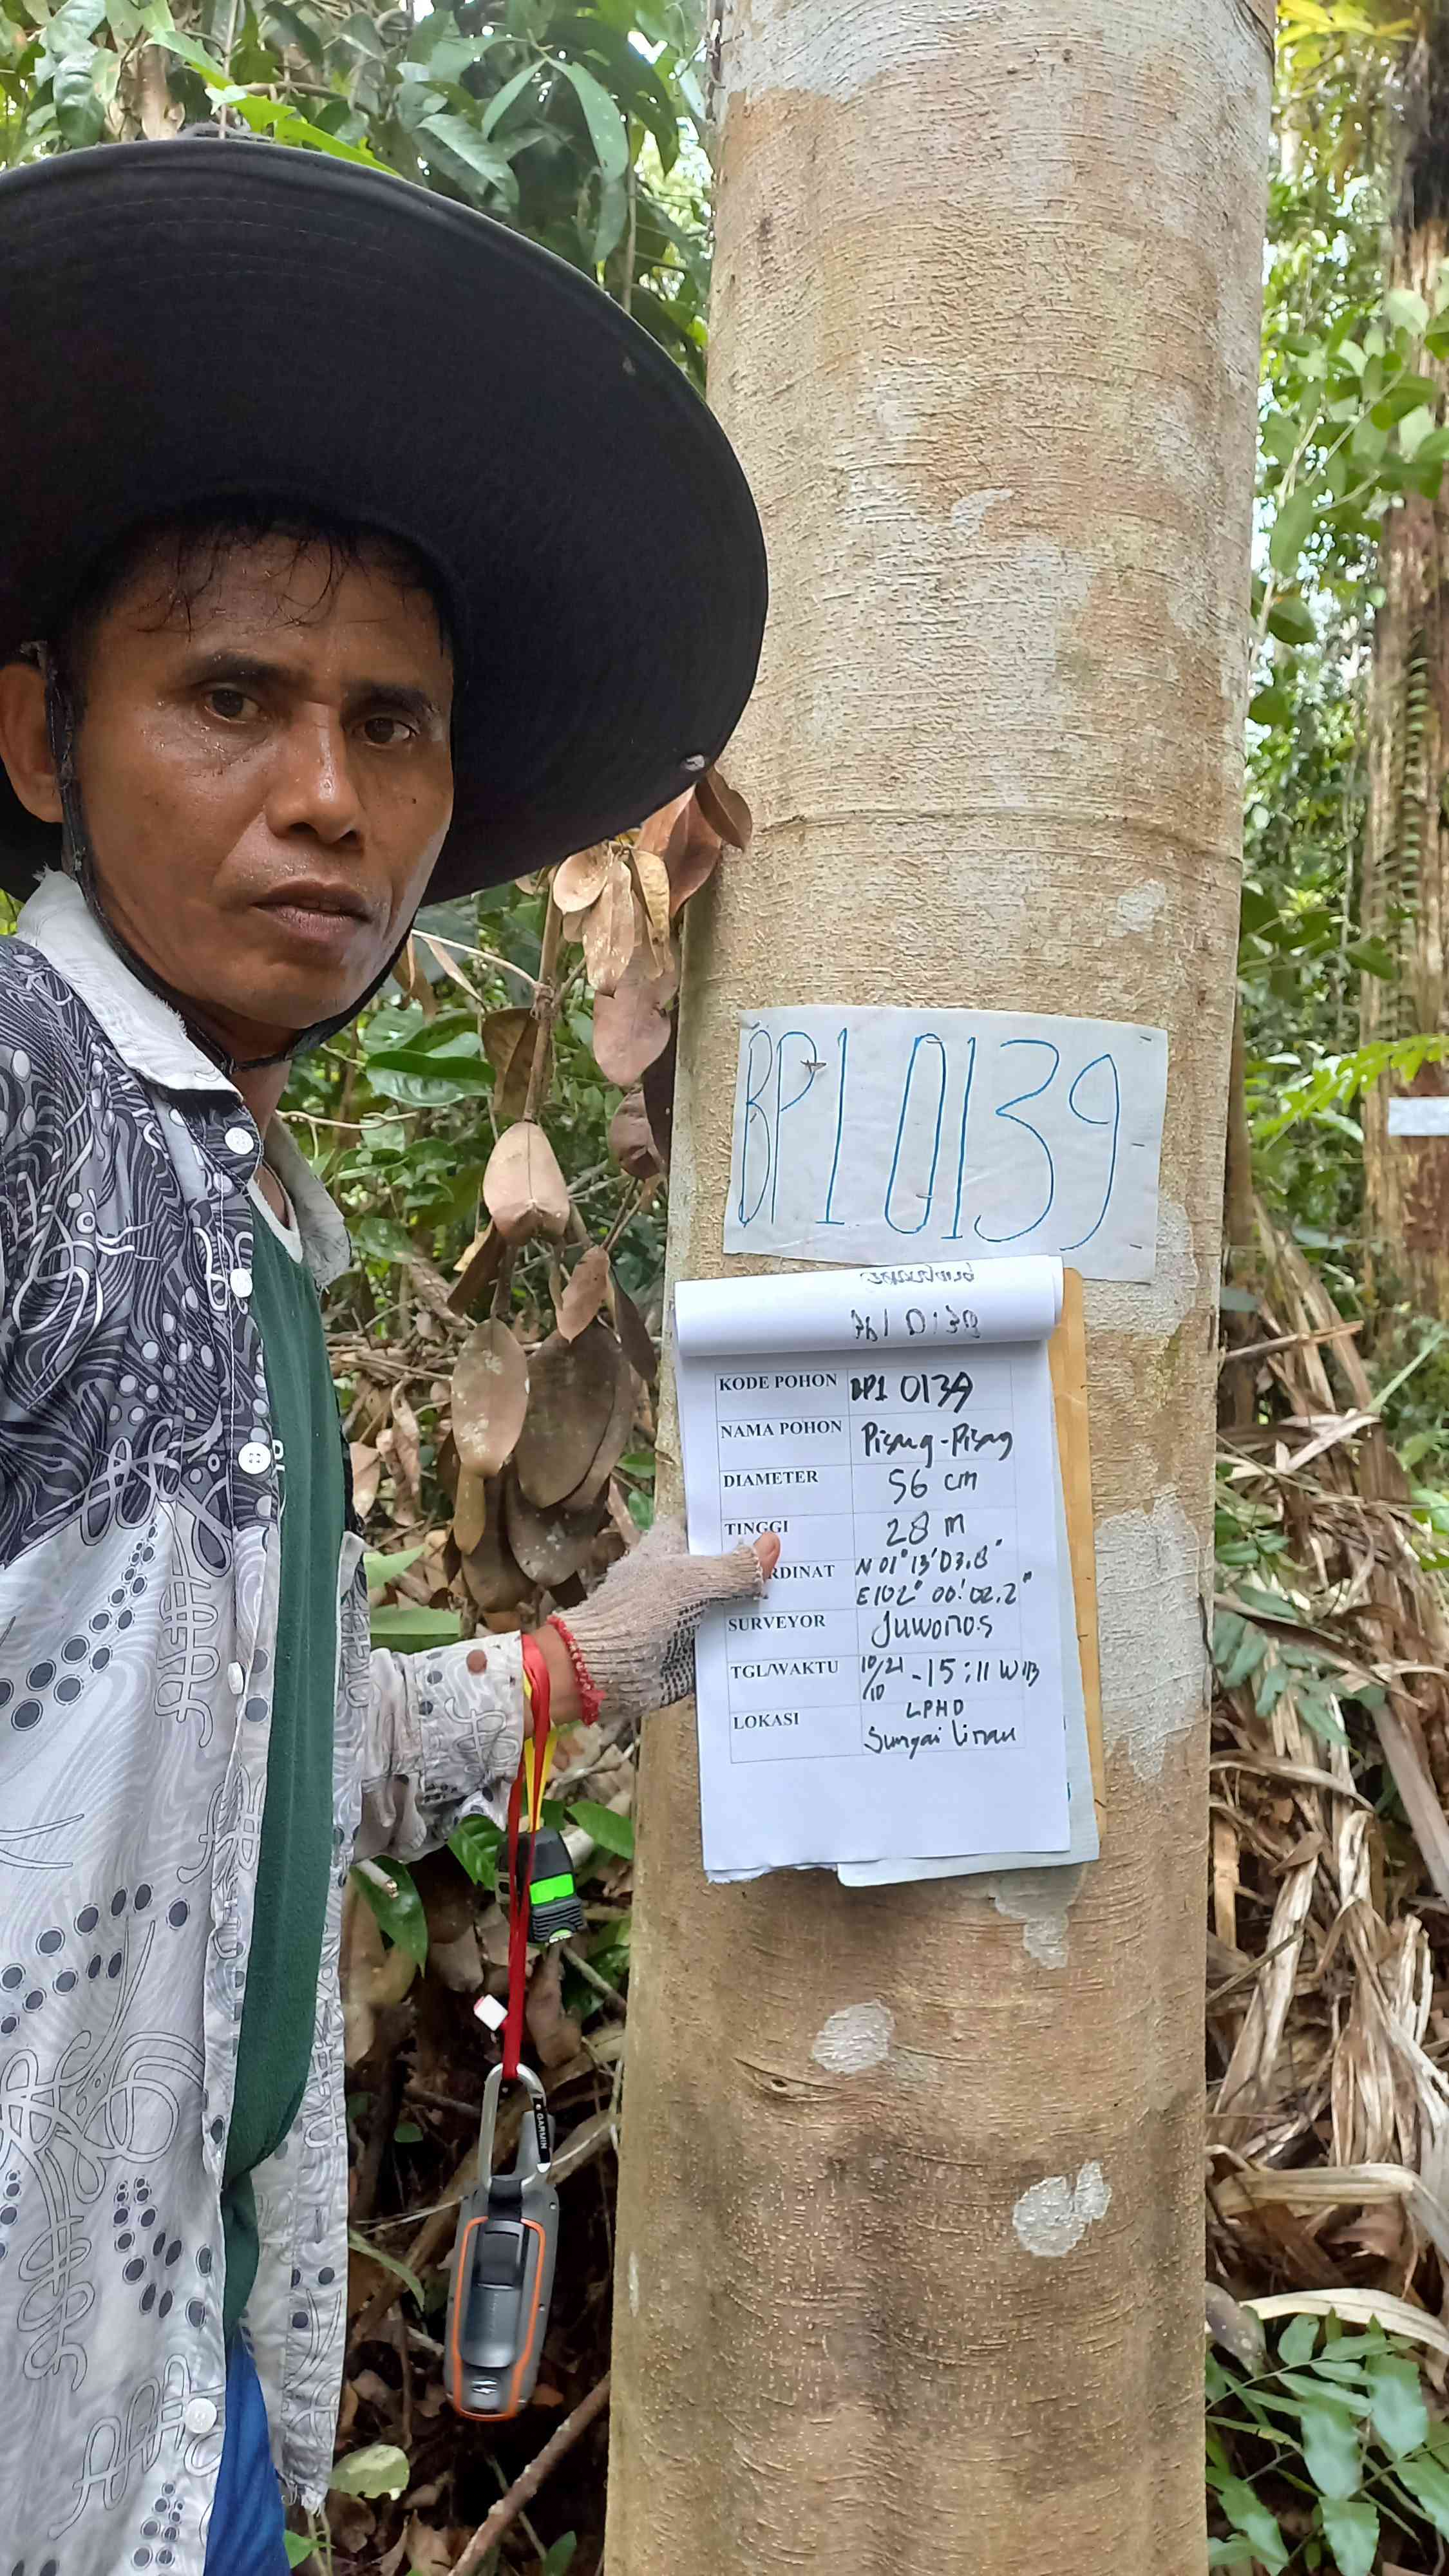 BP1 0139
KODE POHON BP1 0139
NAMA POHON Pisang-Pisang
DIAMETER 56 cm
TINGGI 28 m
RDINAT N 01° 13' 03.8"
E 102° 00' 02.2"
SURVEYOR Juwono.S
TGL/WAKTU 10/21 /10 - 15:11 WIB
LOKASI LPHD
Sungai Linau
GARMIN